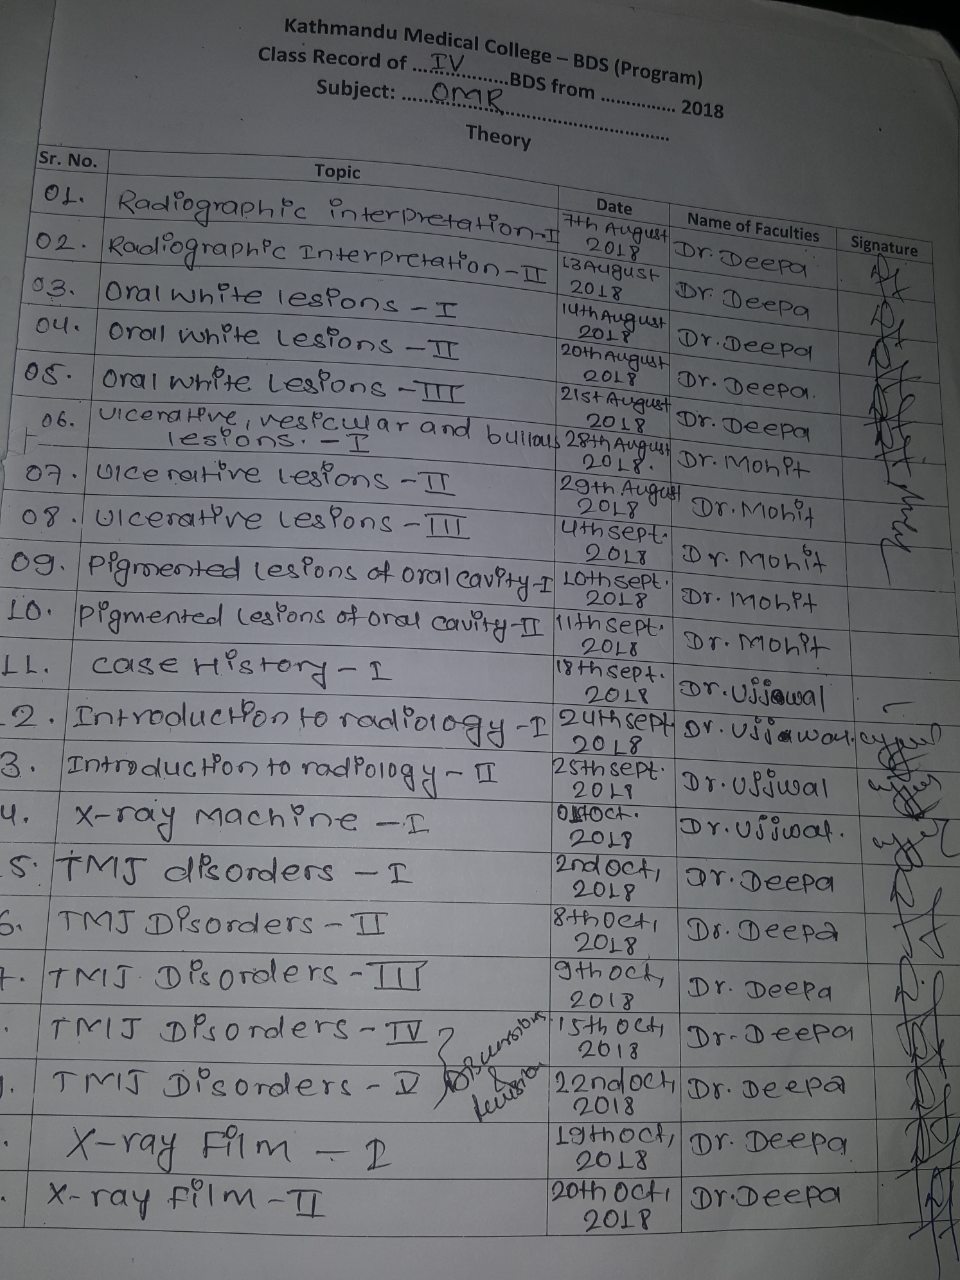 Kathmandu Medical College – BDS (Program)
Class Record of ...IV............BDS from ............... 2018
Subject: ......OMR........................................
Theory
Sr. No. Topic Date Name of Faculties Signature
01. Radiographic interpretation-I 7th August 2018 Dr. Deepa
02. Radiographic Interpretation-II 13 August 2018 Dr. Deepa
03. Oral white lesions - I 14th August 2018 Dr. Deepa
04. Oral white Lesions - II 20th August 2018 Dr. Deepa.
05. Oral white Lesions - III 21st August 2018 Dr. Deepa
06. Ulcerative, vesicular and bullous lesions. - I 28th August 2018. Dr. Mohit
07. Ulcerative Lesions - II 29th August 2018 Dr. Mohit
08. Ulcerative Lesions - III 4th sept. 2018 Dr. Mohit
09. Pigmented lesions of oral cavity-I 10th sept. 2018 Dr. Mohit
10. pigmented lesions of oral cavity-II 11th sept. 2018 Dr. Mohit
11. case History - I 18th sept. 2018 Dr. Ujjawal
2. Introduction to radiology - I 24th sept 2018 Dr. Ujjawal.
3. Introduction to radiology - II 25th sept. 2018 Dr. Ujjwal
4. X-ray Machine - I Oct. 2018 Dr. Ujjwal.
5. TMJ disorders - I 2nd Oct, 2018 Dr. Deepa
6. TMJ Disorders - II 8th Oct, 2018 Dr. Deepa
7. TMJ Disorders - III 9th oct, 2018 Dr. Deepa
. TMJ Disorders - IV 15th Oct, 2018 Dr. Deepa
. TMJ Disorders - V 22nd oct, 2018 Dr. Deepa
. X-ray Film - I 19th oct, 2018 Dr. Deepa
. X-ray film - II 20th Oct, 2018 Dr. Deepa